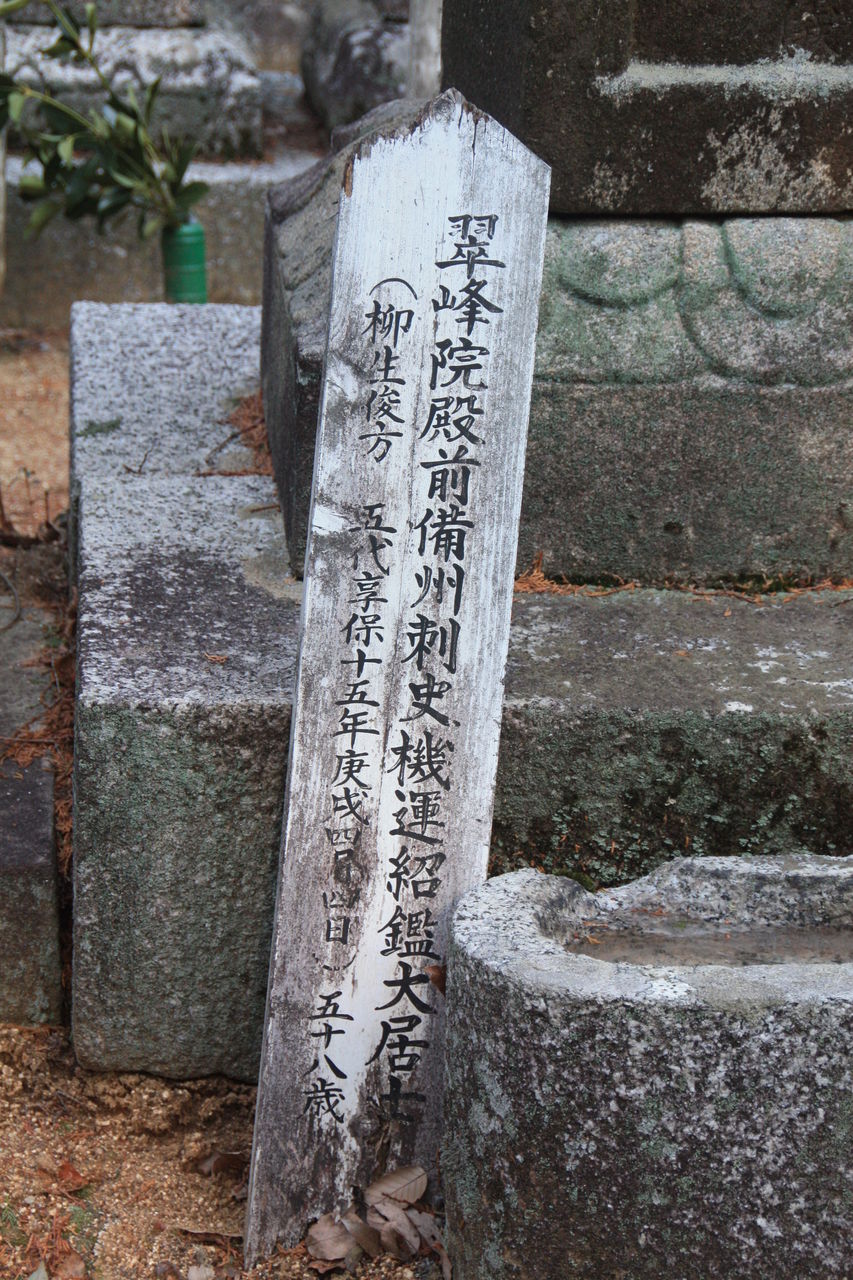 翠峰院殿前備州刺史機運紹鑑大居士
(柳生俊方 五代享保十五年庚戌四月四日) 五十八歳